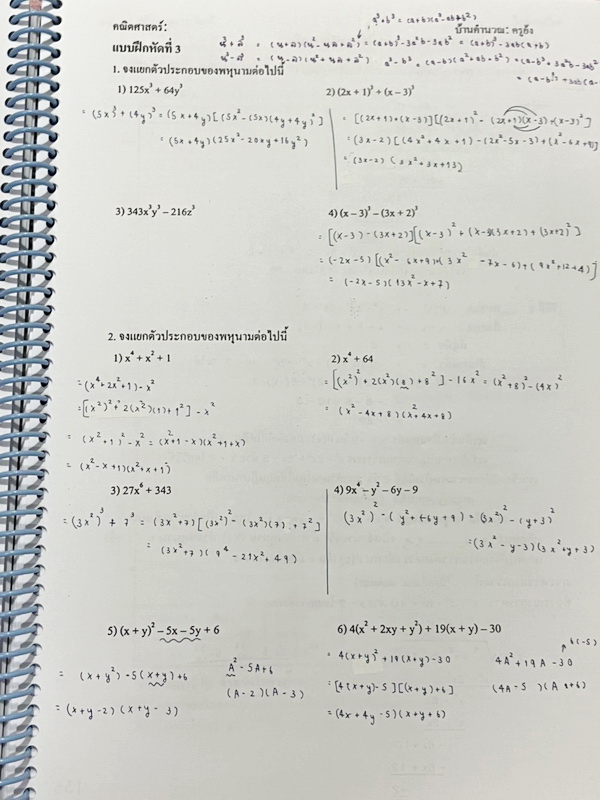 คณิตศาสตร์:
บ้านคำนวณ: ครูอ้ง
a³+b³ = (a+b)(a²-ab+b²)
แบบฝึกหัดที่ 3
น³+ล³ = (น+ล)(น²-นล+ล²) = (a+b)³-3a²b-3ab² = (a+b)³-3ab(a+b)
น³-ล³ = (น-ล)(น²+นล+ล²)
a³-b³ = (a-b)(a²+ab+b²)
1. จงแยกตัวประกอบของพหุนามต่อไปนี้
1) 125x³ + 64y³
= (5x)³ + (4y)³ = (5x+4y)[(5x)²-(5x)(4y)+4y)²]
= (5x+4y)(25x²-20xy+16y²)
2) (2x + 1)³ + (x – 3)³
= [(2x+1)+(x-3)][(2x+1)²-(2x+1)(x-3)+(x-3)²]
= (3x-2)[(4x²+4x+1)-(2x²-5x-3)+(x²-6x+9)]
= (3x-2)(3x²+3x+13)
3) 343x³y³ – 216z³
4) (x – 3)³ – (3x + 2)³
= [(x-3)-(3x+2)][(x-3)²+(x-3)(3x+2)+(3x+2)²]
= (-2x-5)[(x²-6x+9)+(3x²-7x-6)+(9x²+12+4)]
= (-2x-5)(13x²-x+7)
2. จงแยกตัวประกอบของพหุนามต่อไปนี้
1) x⁴ + x² + 1
= (x⁴+2x²+1)-x²
= [(x²)²+2(x²)(1)+1²]-x²
= (x²+1)²-x² = (x²+1-x)(x²+1+x)
= (x²-x+1)(x²+x+1)
2) x⁴ + 64
= [(x²)²+2(x²)(8)+8²]-16x² = (x²+8)²-(4x)²
= (x²-4x+8)(x²+4x+8)
3) 27x⁶ + 343
= (3x²)³+7³ = (3x²+7)[(3x²)²-(3x²)(7)+7²]
= (3x²+7)(9⁴-21x²+49)
4) 9x⁴ – y² – 6y – 9
(3x²)²-(y²+6y+9) = (3x²)²-(y+3)²
= (3x²-y-3)(3x²+y+3)
5) (x + y)² – 5x – 5y + 6
= (x+y²)-5(x+y)+6 A²-5A+6
(A-2)(A-3)
= (x+y-2)(x+y-3)
6) 4(x² + 2xy + y²) + 19(x + y) – 30
6(-5)
= 4(x+y)²+19(x+y)-30 4A²+19A-30
= [4(x+y)-5][(x+y)+6] (4A-5)(A+6)
= (4x+4y-5)(x+y+6)